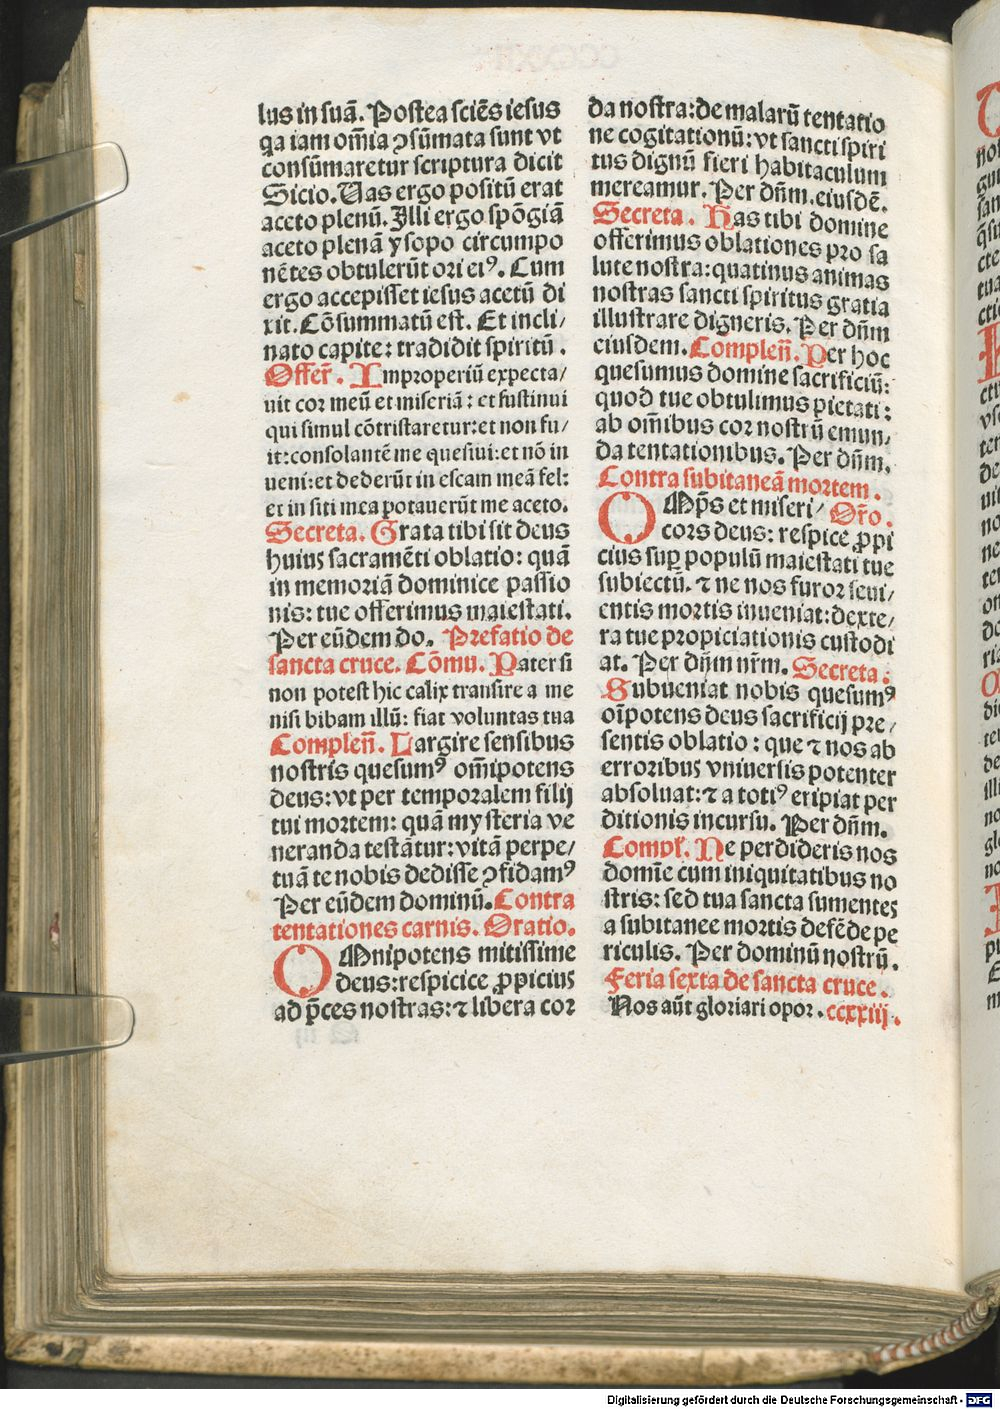 lus in suā. Postea sciēs iesus
qa iam om̄ia ꝯsūmata sunt vt
consūmaretur scriptura dicit
Sicio. Vas ergo positū erat
aceto plenū. Illi ergo spōgiā
aceto plenā ysopo circumpo
nētes obtulerūt ori eiꝰ. Cum
ergo accepisset iesus acetū di
xit. Cōsummatū est. Et incli/
nato capite: tradidit spiritū.
Offer̄. Improperiū expecta/
uit cor meū et miseriā: et sustinui
qui simul cōtristaretur: et non fu/
it: consolantē me quesiui: et nō in
ueni: et dederūt in escam meā fel:
et in siti mea potauerūt me aceto.
Secreta. Grata tibi sit deus
huius sacramēti oblatio: quā
in memoriā dominice passio
nis: tue offerimus maiestati.
Per eūdem do. Prefatio de
sancta cruce. Cōmu. Pater si
non potest hic calix transire a me
nisi bibam illū: fiat voluntas tua
Compleñ. Largire sensibus
nostris quesumꝰ om̄ipotens
deus: vt per temporalem filij
tui mortem: quā mysteria ve
neranda testātur: vitā perpe/
tuā te nobis dedisse ꝯfidamꝰ
Per eūdem dominū. Contra
tentationes carnis. Oratio.
OMnipotens mitissime
deus: respicice ꝓpicius
ad p̄ces nostras: ⁊ libera cor
da nostra: de malarū tentatio
ne cogitationū: vt sancti spiri
tus dignū fieri habitaculum
mereamur. Per dn̄m. eiusdē.
Secreta. Has tibi domine
offerimus oblationes pro sa
lute nostra: quatinus animas
nostras sancti spiritus gratia
illustrare digneris. Per dn̄m
eiusdem. Compleñ. Per hoc
quesumus domine sacrificiū:
quod tue obtulimus pietati:
ab om̄ibus cor nostrū emun/
da tentationibus. Per dn̄m.
Contra subitaneā mortem.
OMp̄s et miseri/ Or̄o.
cors deus: respice ꝓpi
cius suꝑ populū maiestati tue
subiectū. ⁊ ne nos furor seui/
entis mortis inueniat: dexte/
ra tue propiciationis custodi
at. Per dn̄m nr̄m. Secreta:
Subueniat nobis quesumꝰ
oīpotens deus sacrificij pre/
sentis oblatio: que ⁊ nos ab
erroribus vniuersis potenter
absoluat: ⁊ a totiꝰ eripiat per
ditionis incursu. Per dn̄m.
Compl̄. Ne perdideris nos
domīe cum iniquitatibus no
stris: sed tua sancta sumentes
a subitanee mortis defēde pe
riculis. Per dominū nostrū.
Feria sexta de sancta cruce.
Nos aūt gloriari opor. ccxxiij.
Digitalisierung gefördert durch die Deutsche Forschungsgemeinschaft - DFG